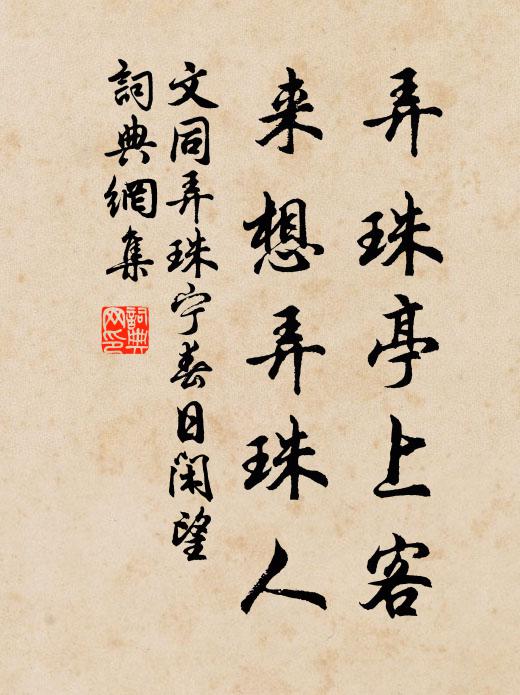 弄珠亭上客
来想弄珠人
文同弄珠宁春日闲望
詞典網集
詞典网印